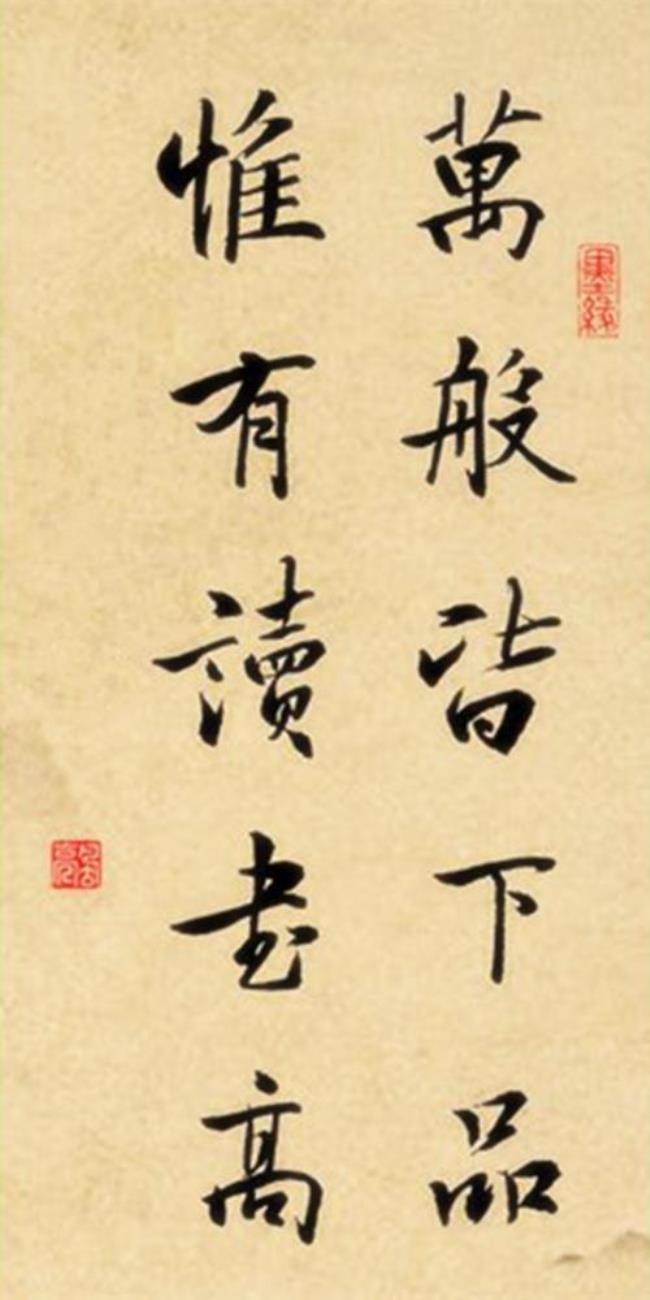 萬般皆下品
惟有讀書高
墨緣